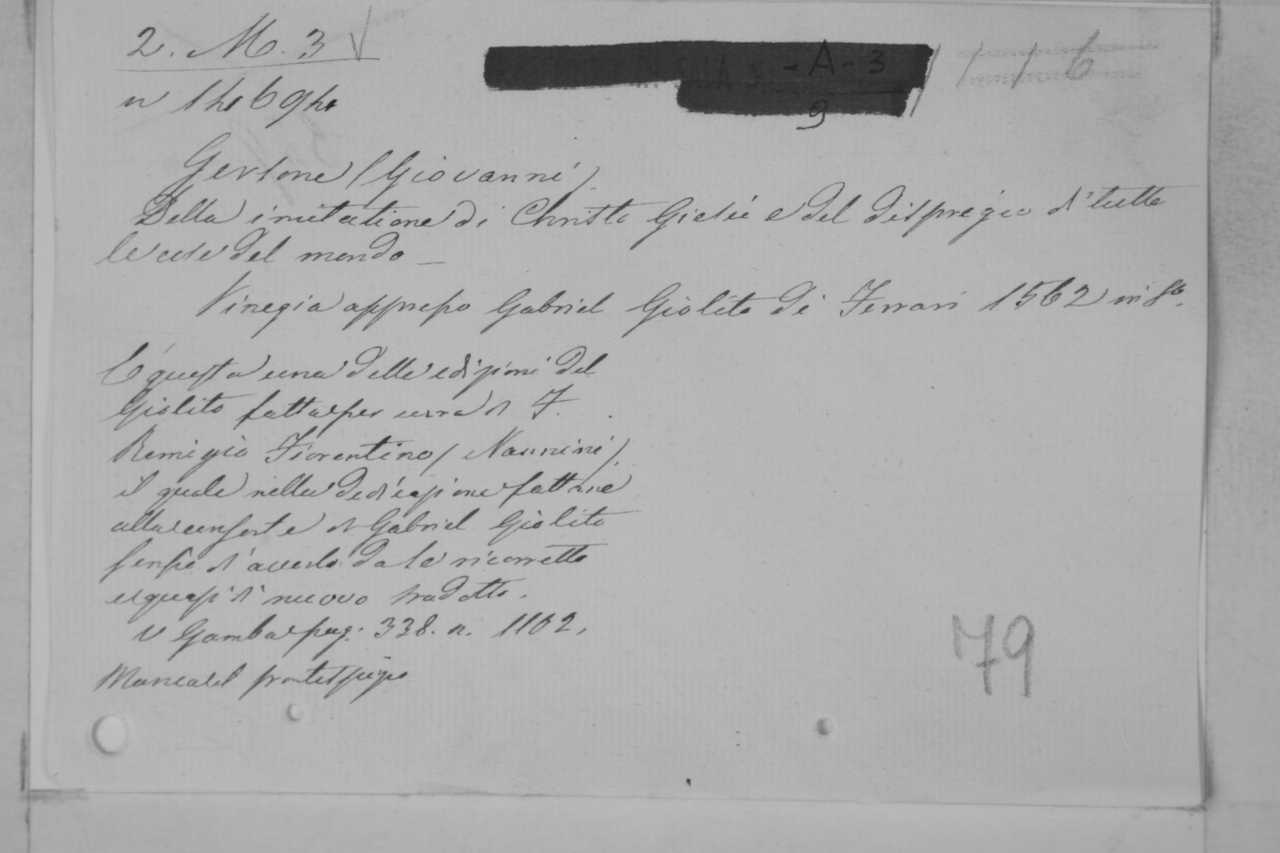 2. M. 3
- A - 3
9
6
Gersone (Giovanni)
Della imitatione di Christo Giesù e del dispregio di tutte
le cose del mondo
Vinegia appresso Gabriel Giolito de Ferrari 1562 in 8º.
È questa una delle edizioni del
Giolito fatta per cura di F.
Remigio Fiorentino (Nannini)
il quale nella dedicazione fattane
alla consorte di Gabriel Giolito
d'averlo da se ricorretto
e quasi di nuovo tradotto.
V Gamba pag. 338. n. 1102.
Manca del frontespizio
79